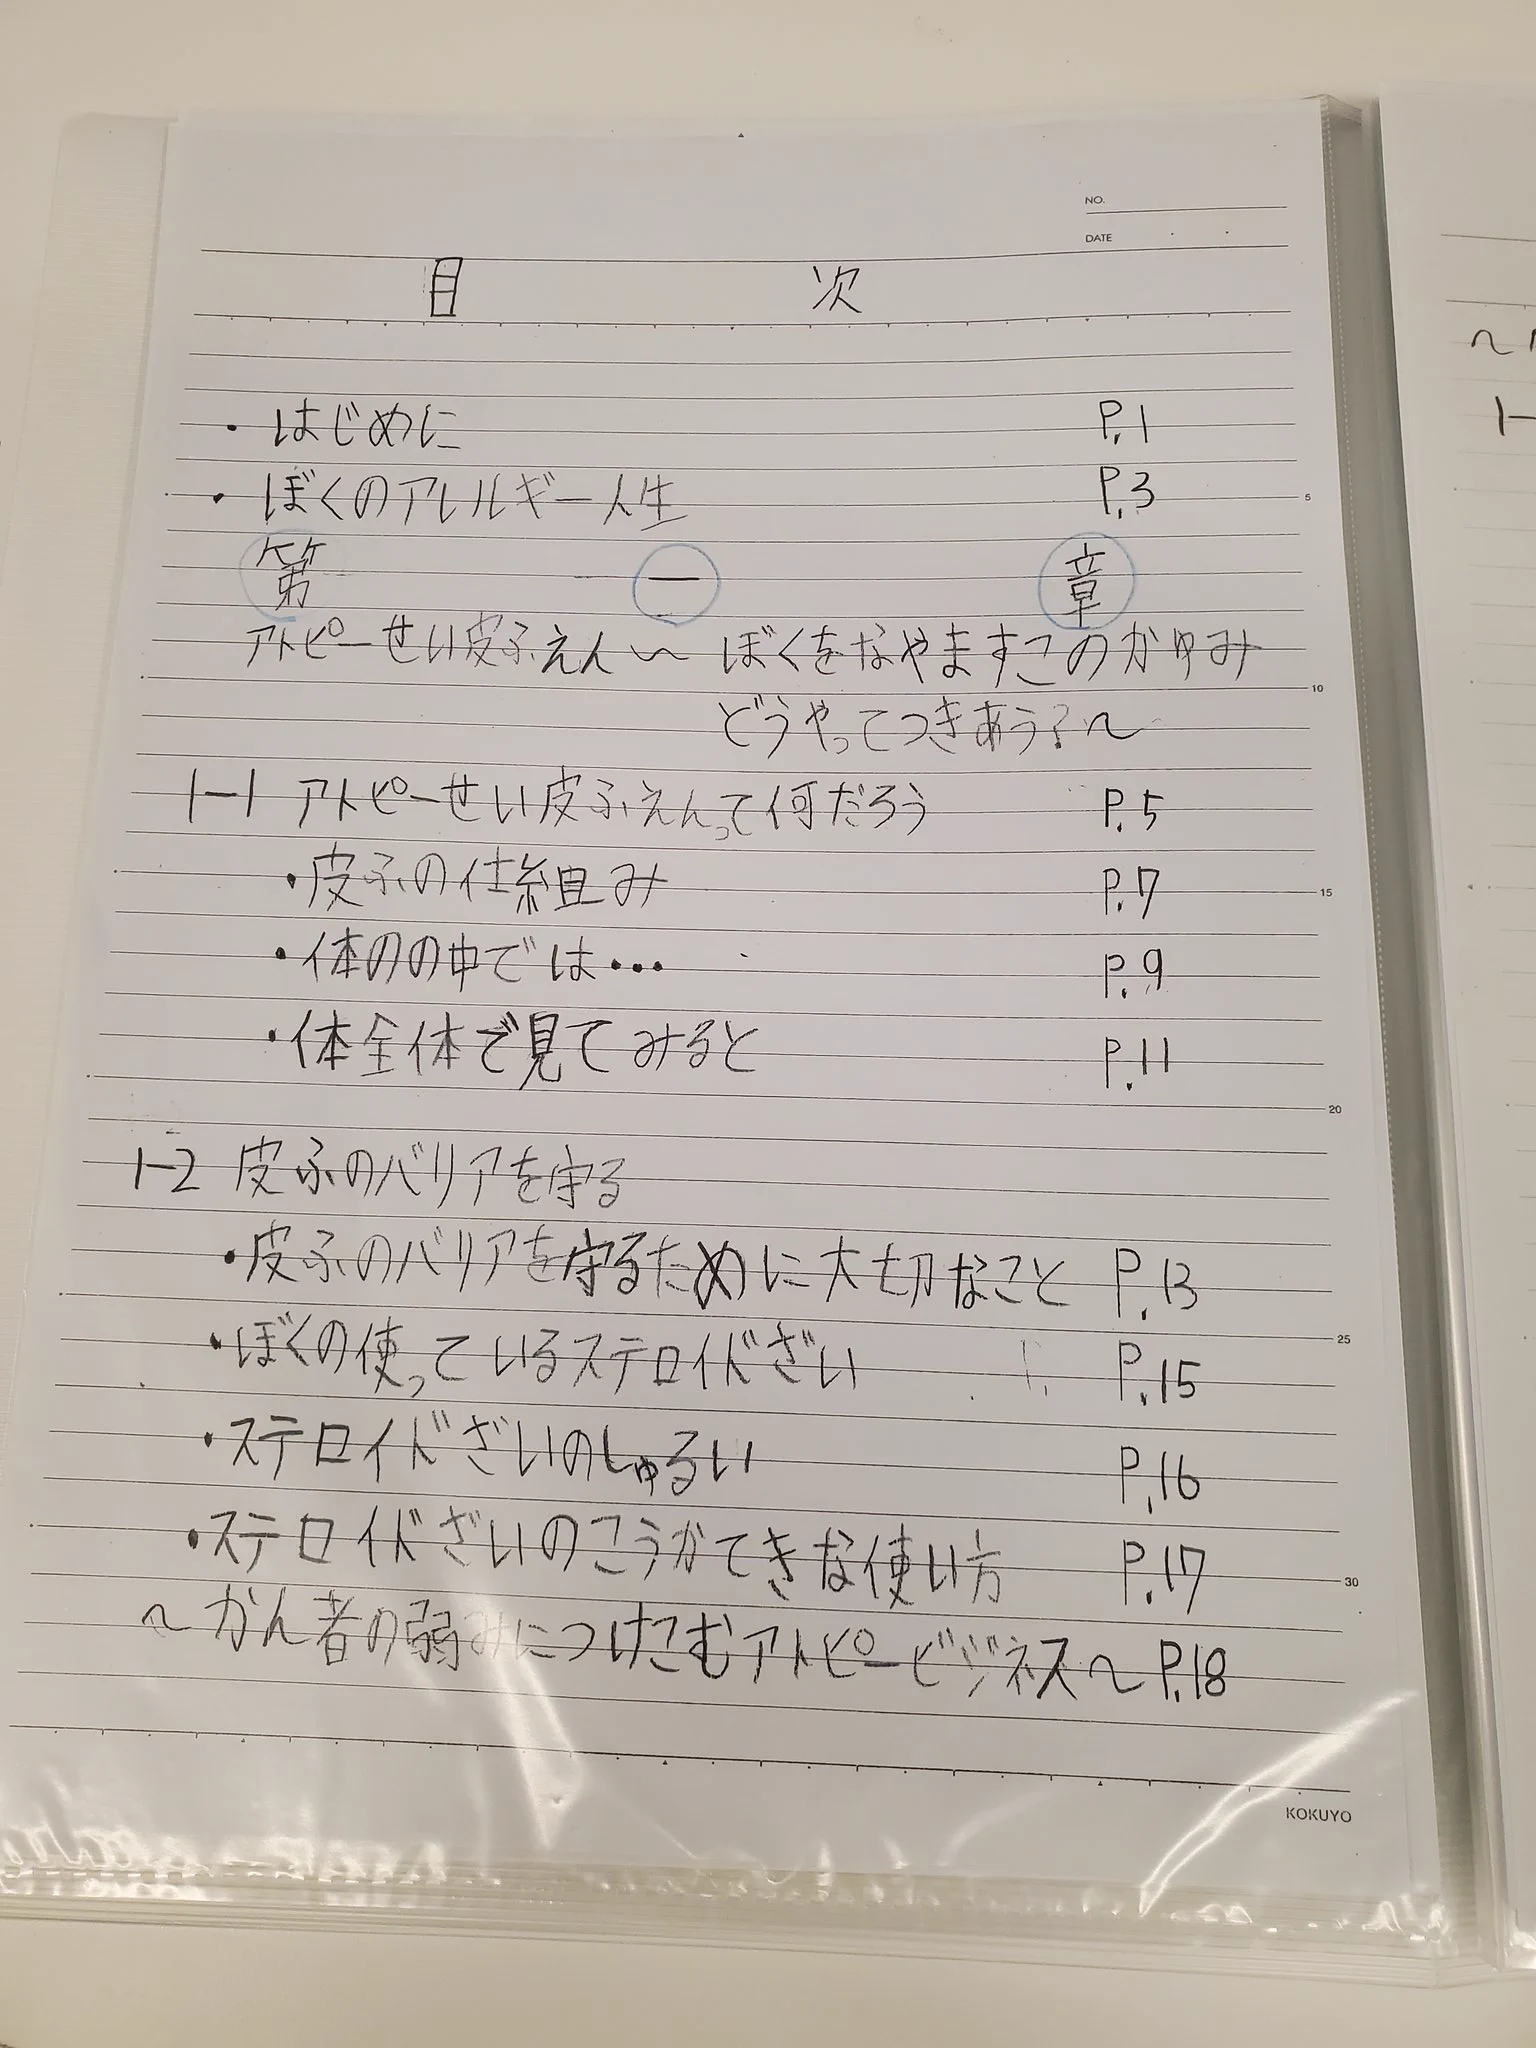 NO.
DATE
目 次
・はじめに P.1
・ぼくのアレルギー人生 P.3
5
第 一 章
アトピーせい皮ふえん〜ぼくをなやますこのかゆみ
10
どうやってつきあう?〜
1-1 アトピーせい皮ふえんって何だろう P.5
・皮ふの仕組み P.7
15
・体のの中では••• P.9
・体全体で見てみると P.11
20
1-2 皮ふのバリアを守る
・皮ふのバリアを守るために大切なこと P.13
25
・ぼくの使っているステロイドざい P.15
・ステロイドざいのしゅるい P.16
・ステロイドざいのこうかてきな使い方 P.17
30
〜かん者の弱みにつけこむアトピービジネス〜 P.18
KOKUYO